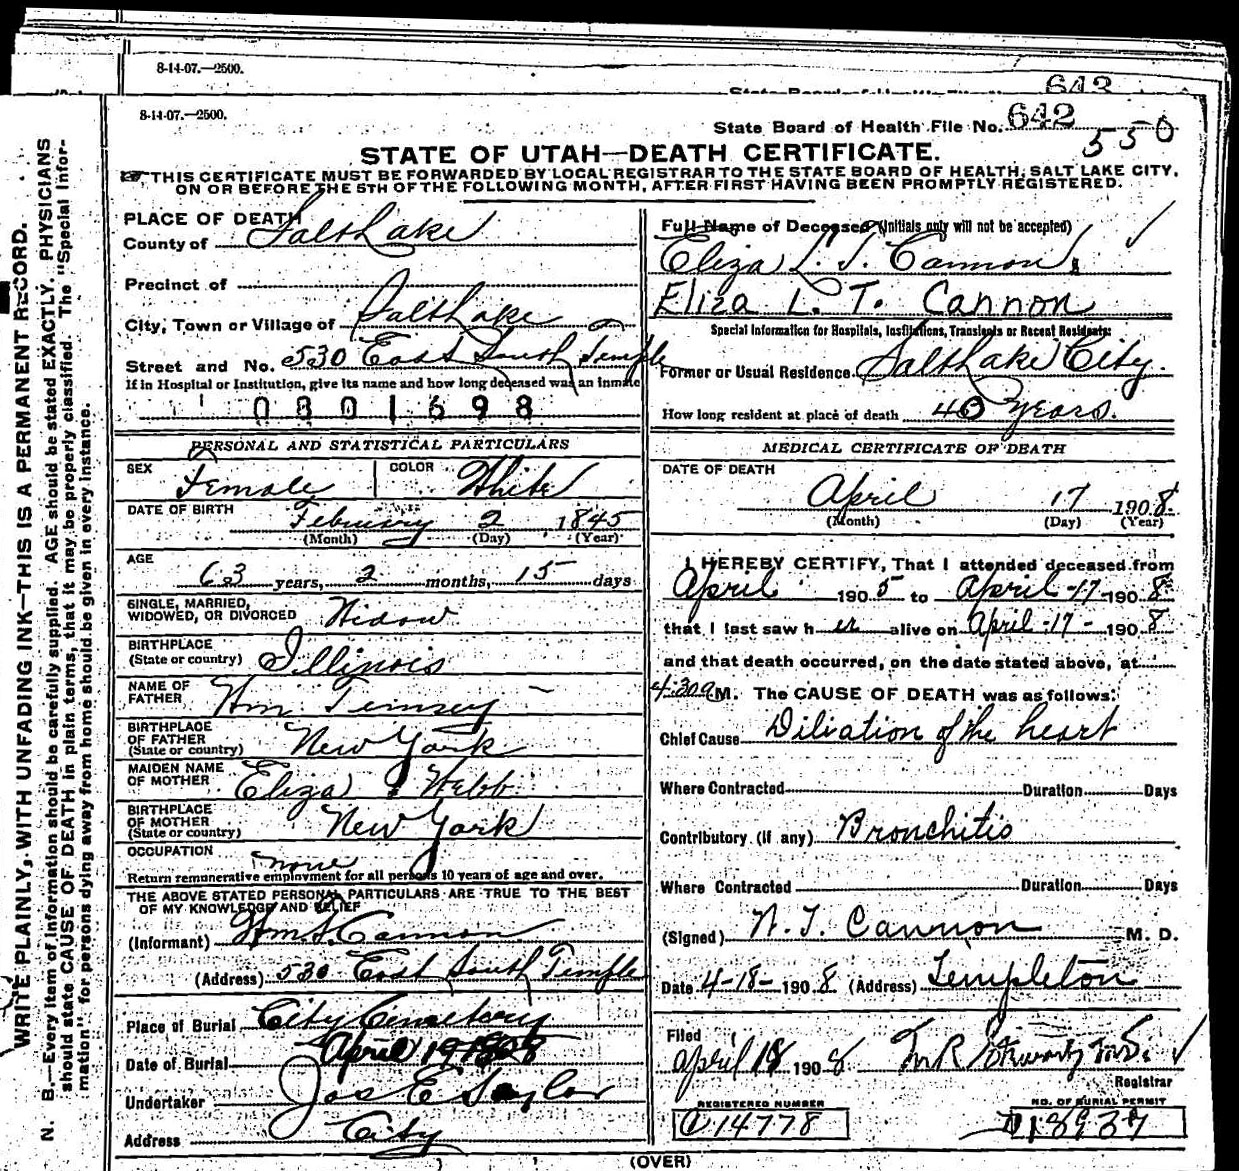 8-14-07.—2500.
643
8-14-07.—2500.
State Board of Health File No. 642
550
STATE OF UTAH—DEATH CERTIFICATE.
THIS CERTIFICATE MUST BE FORWARDED BY LOCAL REGISTRAR TO THE STATE BOARD OF HEALTH, SALT LAKE CITY,
ON OR BEFORE THE 5TH OF THE FOLLOWING MONTH, AFTER FIRST HAVING BEEN PROMPTLY REGISTERED.
WRITE PLAINLY, WITH UNFADING INK—THIS IS A PERMANENT RECORD.
N. B.—Every item of information should be carefully supplied. AGE should be stated EXACTLY. PHYSICIANS
should state CAUSE OF DEATH in plain terms, that it may be properly classified. The "Special Infor-
mation" for persons dying away from home should be given in every instance.
PLACE OF DEATH
County of Salt Lake
Precinct of
City, Town or Village of Salt Lake
Street and No. 530 East South Temple
If in Hospital or Institution, give its name and how long deceased was an inmate
0801698
PERSONAL AND STATISTICAL PARTICULARS
SEX Female COLOR White
DATE OF BIRTH February 2 1845
(Month) (Day) (Year)
AGE 63 years, 2 months, 15 days
SINGLE, MARRIED,
WIDOWED, OR DIVORCED Widow
BIRTHPLACE
(State or country) Illinois
NAME OF
FATHER Wm. Tenney
BIRTHPLACE
OF FATHER
(State or country) New York
MAIDEN NAME
OF MOTHER Eliza Webb
BIRTHPLACE
OF MOTHER
(State or country) New York
OCCUPATION none
Return remunerative employment for all persons 10 years of age and over.
THE ABOVE STATED PERSONAL PARTICULARS ARE TRUE TO THE BEST
OF MY KNOWLEDGE AND BELIEF
(Informant) Wm. T. Cannon
(Address) 530 East South Temple
Place of Burial City Cemetery
Date of Burial April 19 1908
Undertaker Jos E Taylor
Address City
Full Name of Deceased (Initials only will not be accepted)
Eliza L. T. Cannon
Eliza L. T. Cannon
Special Information for Hospitals, Institutions, Transients or Recent Residents:
Former or Usual Residence Salt Lake City.
How long resident at place of death 40 years.
MEDICAL CERTIFICATE OF DEATH
DATE OF DEATH
April 17 1908
(Month) (Day) (Year)
I HEREBY CERTIFY, That I attended deceased from
April 1905 to April -17- 1908
that I last saw her alive on April -17- 1908
and that death occurred, on the date stated above, at
4:30a M. The CAUSE OF DEATH was as follows:
Chief Cause Diliation of the heart
Where Contracted Duration Days
Contributory (if any) Bronchitis
Where Contracted Duration Days
(Signed) W. T. Cannon M. D.
Date 4-18- 1908 (Address) Templeton
Filed
April 18 1908
Registrar
REGISTERED NUMBER
14778
NO. OF BURIAL PERMIT
(OVER)